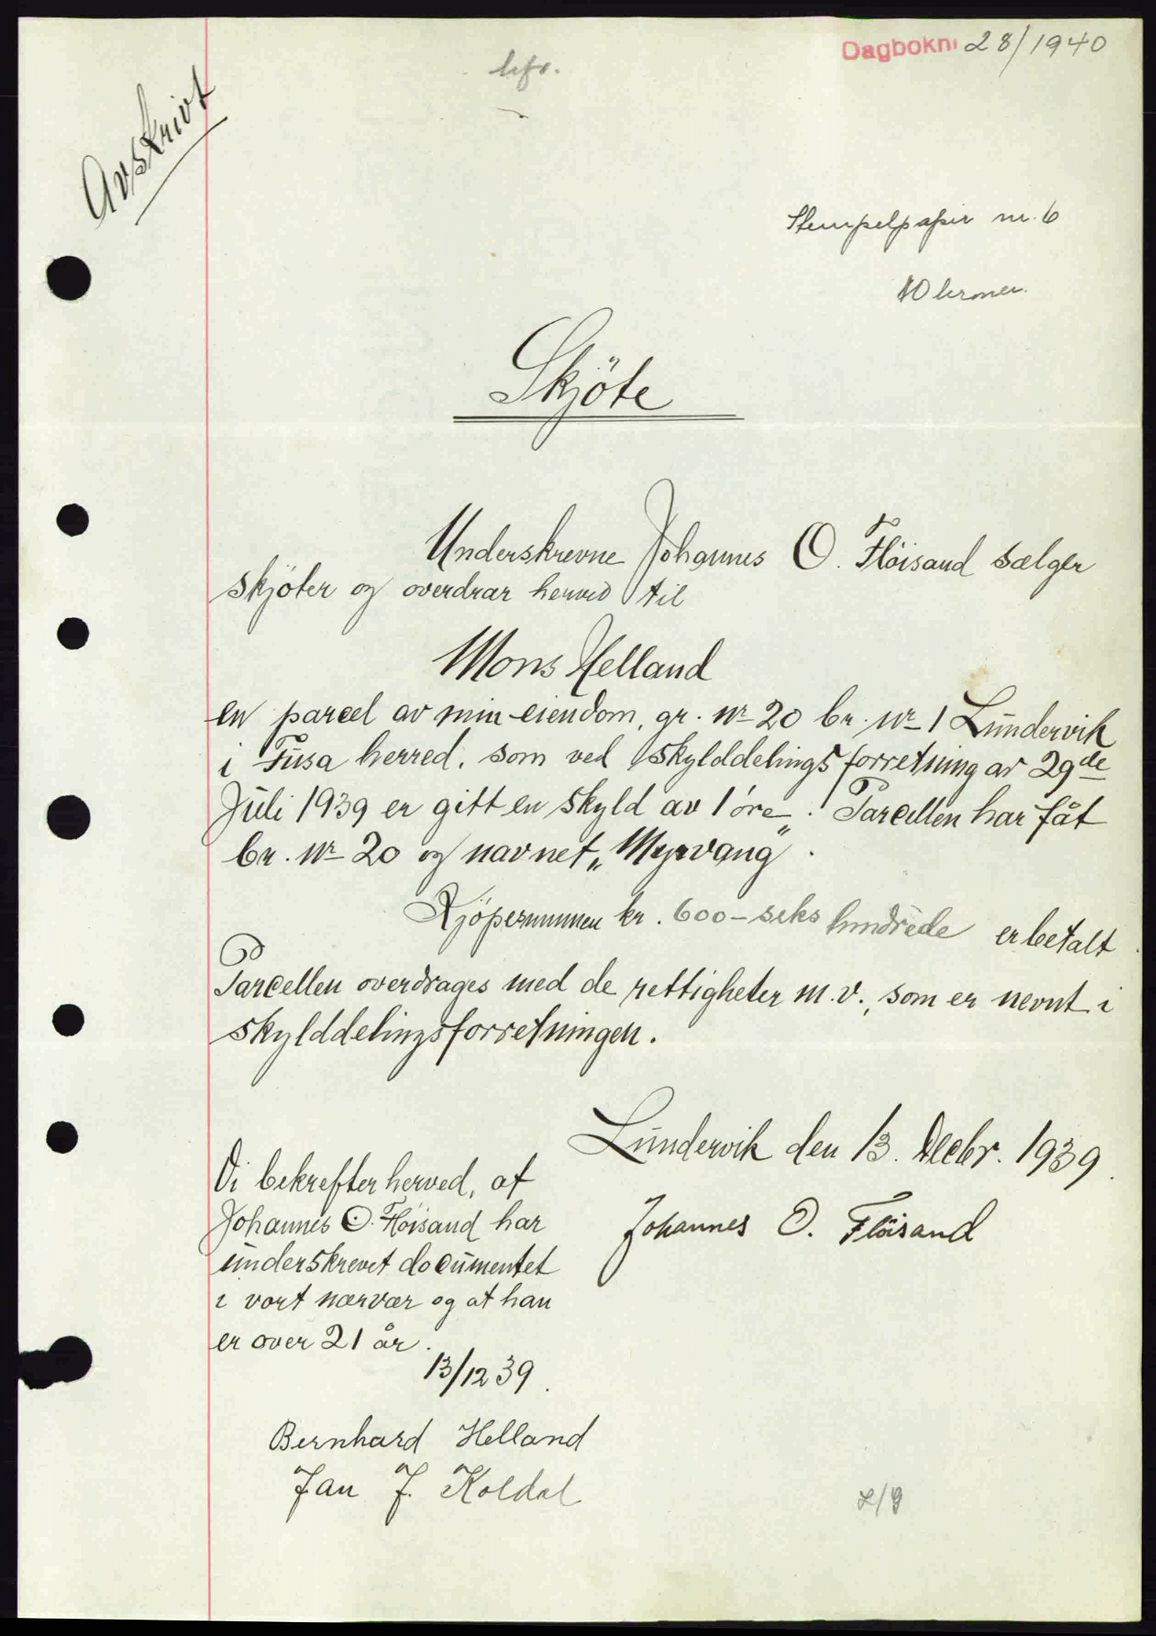 Dagboknr 28/1940
Avskrivt
Stempelpapir nr. 6
10 kroner.
Skjöte
Underskrevne Johannes O. Flöisand sælger
skjöter og overdrar herved til
Mons Helland
en parcel av min eiendom, gr. nr 20 br. nr 1 Lundervik
i Fusa herred. som ved skylddelingsforretning av 29de
Juli 1939 er gitt en skyld av 1 öre. Parcellen har fåt
br. nr 20 og navnet „Myrvang".
Kjöpesummen kr. 600 - seks hundrede er betalt.
Parcellen overdrages med de rettigheter m.v., som er nevnt i
skylddelingsforretningen.
Lundervik den 13. Decbr. 1939.
Johannes O. Flöisand
Vi bekrefter herved, at
Johannes O. Flöisand har
underskrevet documentet
i vort nærvær og at han
er over 21 år.
13/12 39.
Bernhard Helland
Jan J. Koldal